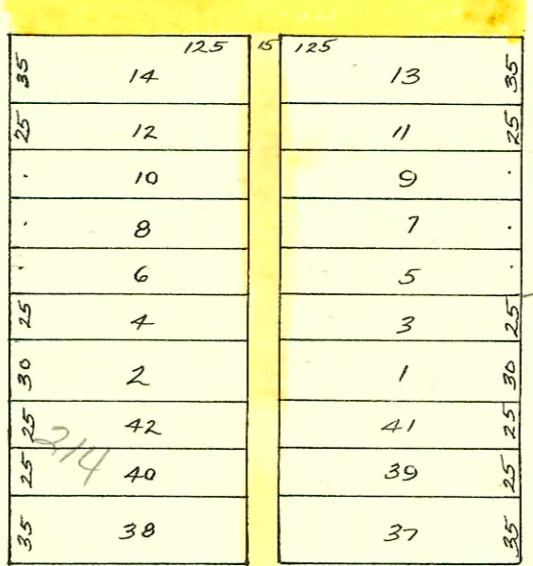 125 15 125
35 14 13 35
25 12 11 25
· 10 9 ·
· 8 7 ·
· 6 5 ·
25 4 3 25
30 2 1 30
25 42 41 25
214
25 40 39 25
35 38 37 35